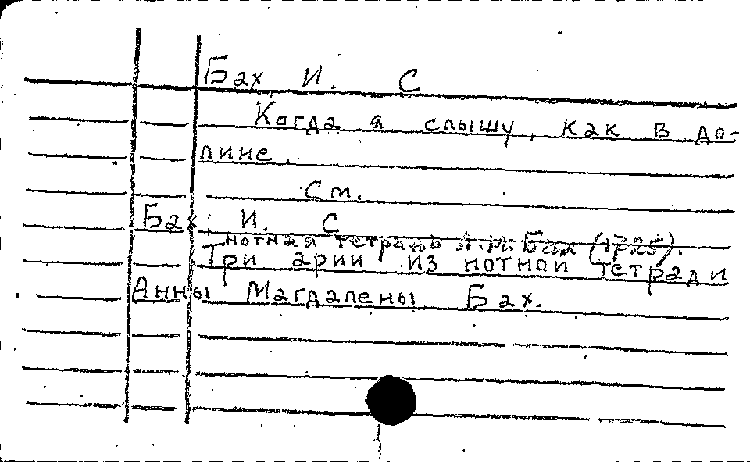 Бах, И. С
Когда я слышу, как в до-
лине.
см.
Бах И. С
нотная тетрадь А.М. Бах (1725).
Три арии из нотной тетради
Анны Магдалены Бах.